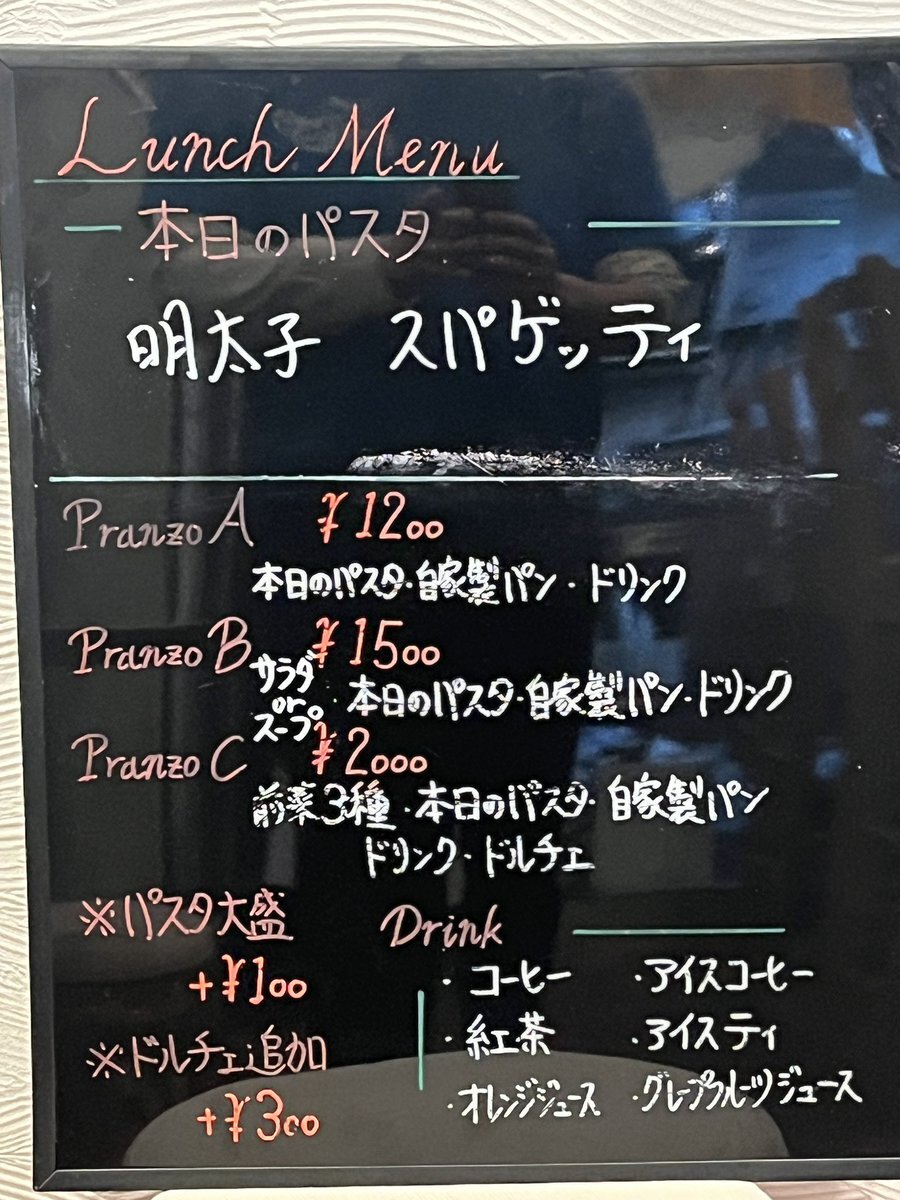 Lunch Menu
本日のパスタ
明太子 スパゲッティ
Pranzo A ¥1200
本日のパスタ・自家製パン・ドリンク
Pranzo B ¥1500
サラダ
or
スープ
・本日のパスタ・自家製パン・ドリンク
Pranzo C ¥2000
前菜3種・本日のパスタ・自家製パン
ドリンク・ドルチェ
※パスタ大盛
+¥100
※ドルチェ追加
+¥300
Drink
・コーヒー ・アイスコーヒー
・紅茶 ・アイスティ
・オレンジジュース ・グレープフルーツジュース